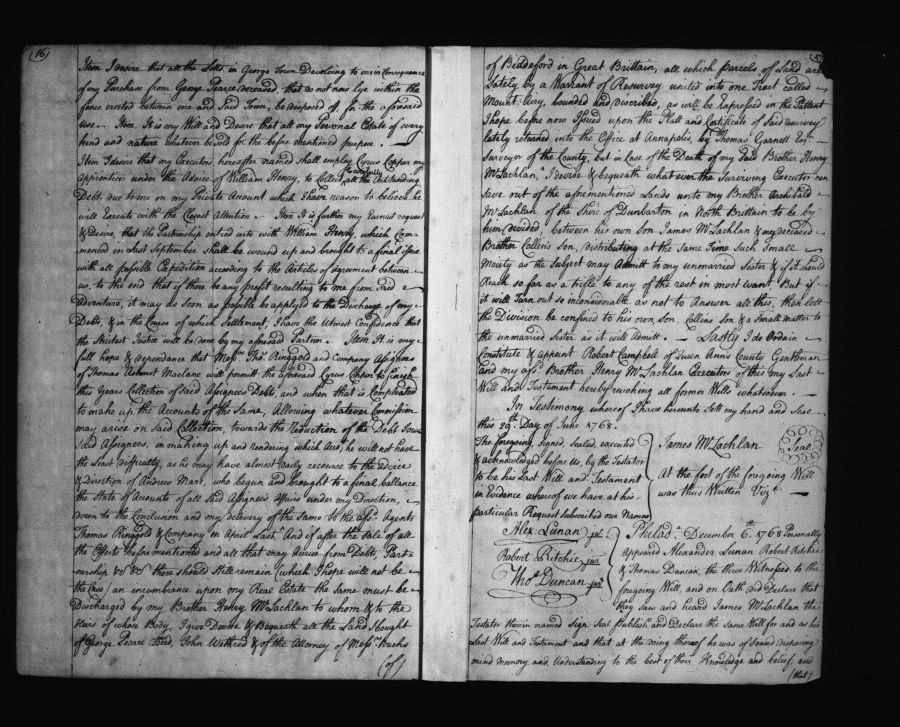 16
Item I desire that all the Lotts in George Town Devolving to me in Consequence
of my Purchase from George Pearce deceased, that do not now lye within the
fence erected between me and Said Town, be disposed of for the aforesaid
use. Item. It is my Will and Desire that all my Personal Estate of every
kind and nature whatever be sold for the before mentioned purpose.
Item I desire that my Executors hereafter named shall employ Cyrus Copper my
Apprentice under the Advice of William Henry, to Collect carefully all the Outstanding
Debts due to me on my Private Account which I have reason to believe he
will Execute with the Closest Attention. Item It is further my Earnest request
& Desire, that the Partnership entred into with William Henry, which Com-
menced in Last September shall be wound up and brought to a final issue
with all possible Expedition according to the Articles of Agreement between
us, to the end that if there be any profit resulting to me from said
Adventure, it may as soon as possible be applyed to the Discharge of my
Debts, & in the Course of which Settlement, I have the Utmost Confidence that
the Strictest Justice will be done by my aforesaid Partner. Item It is my
full hope & dependance that Messrs. Thos. Ringgold and Company Assignees
of Thomas Ashurst Maclane will permitt the aforesaid Cyrus Copper to finish
this Years Collection of said Assignees Debts, and when that is Compleated
to make up the Accounts of the Same, Allowing whatever Commission
may arise on said Collection, towards the Reduction of the Debt
Said Assignees, in making up and rendering which Acct. he will not have
the Least Difficulty, as he may have almost Daily recourse to the Advice
& Direction of Andrew Marr, who begun and brought to a final ballance
the State of Accounts of all Said Assignees Affairs under my Direction,
down to the Conclusion and my delivery of the same to the Agents
Thomas Ringgold & Company in April Last. And if after the Sale of all
the Effects before mentioned and all that may Accrue from Debts, Part-
nership &c &c there should still remain (which I hope will not be
the Case) an incumbrance upon my Real Estate the same must be
Discharged by my Brother Henry McLachlan to whom & to the
Heirs of whose Body, I give Devise & Bequeath all the Land I bought
of George Pearce Decd. John Wethred & of the Attorney of Messrs. Bucks
(of)
of Biddeford in Great Brittain, all which parcels of Land are
Lately by a Warrant of Resurvey united into one Tract called
Mount Airy, bounded and described, as will be Expressed in the Pattent
I hope before now Issued upon the Platt and Certificate of Said resurvey
lately returned into the Office at Annapolis, by Thomas Garnett Esqr.
Surveyor of the County, but in Case of the Death of my Said Brother Henry
McLachlan, I devise & bequeath what ever the Surviving Executor can
save out of the aforementioned Lands unto my Brother Archibald
McLachlan of the Shire of Dunbarton in North Brittain to be by
him divided, between his own Son James McLachlan & my deceased
Brother Collin's Son, distributing at the Same Time such Small
Moiety as the Subject may Admitt to my unmarried Sister & if it should
Reach so far as a trifle to any of the rest in most want. But if
it will Turn out so inconsiderable as not to Answer all this, then lett
the Division be confined to his own Son, Collins Son & a Small matter to
the unmarried Sister as it will Admitt. Lastly I do Ordain
Constitute & Appoint Robert Campbell of Queen Anns County Gentleman
and my afsd. Brother Henry McLachlan Executors of this my Last
Will and Testament hereby revoking all former Wills whatsoever.
In Testimony whereof I have hereunto Sett my hand and Seal
this 29th. Day of June 1768.
The foregoing Signed, Sealed, executed
& acknowledged before Us, by the Testator
to be his Last Will and Testament
in Evidence whereof we have at his
particular Request Subscribed our Names
James McLachlan
Seal
At the foot of the foregoing Will
was thus Written Vizt.
Alex: Lunan jur
Robert Ritchie jur
Thos Duncan jur
Philada. December 6th. 1768 Personally
Appeared Alexander Lunan Robert Ritchie
& Thomas Duncan, the three Witnesses to the
foregoing Will, and on Oath did Declare that
they saw and heard James McLachlan the
Testator therein named Sign Seal Publish and Declare the same Will for and as his
Last Will and Testament and that at the doing thereof he was of Sound disposing
mind memory and Understanding to the best of their Knowledge and belief, and
(that)